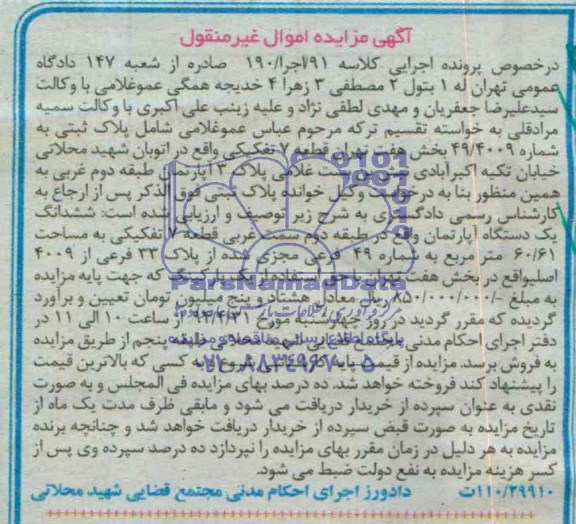 آگهی مزایده اموال غیرمنقول
درخصوص پرونده اجرایی کلاسه ۹۱/اجرا/۱۹۰ صادره از شعبه ۱۴۷ دادگاه
عمومی تهران له ۱ بتول ۲ مصطفی ۳ زهرا ۴ خدیجه همگی عموغلامی با وکالت
سیدعلیرضا جعفریان و مهدی لطفی نژاد و علیه زینب علی اکبری با وکالت سمیه
مرادقلی به خواسته تقسیم ترکه مرحوم عباس عموغلامی شامل پلاک ثبتی به
شماره ۴۹/۴۰۰۹ بخش هفت تهران قطعه ۷ تفکیکی واقع در اتوبان شهید محلاتی
خیابان تکیه اکبرآبادی غلامی پلاک ۳ آپارتمان طبقه دوم غربی به
همین منظور بنا به درخواست وکیل خوانده پلاک ثبتی فوق الذکر پس از ارجاع به
کارشناس رسمی دادگستری به شرح زیر توصیف و ارزیابی شده است: ششدانگ
یک دستگاه آپارتمان واقع در طبقه دوم سمت غربی قطعه ۷ تفکیکی به مساحت
۶۰/۶۱ متر مربع به شماره ۴۹ فرعی مجزی شده از پلاک ۳۳ فرعی از ۴۰۰۹
اصلیواقع در بخش هفت تهران با حق استفاده از یک پارکینگ که جهت پایه مزایده
به مبلغ -/۸۵۰/۰۰۰/۰۰۰ ریال معادل هشتاد و پنج میلیون تومان تعیین و برآورد
گردیده که مقرر گردید در روز چهارشنبه مورخ ۹۴/۴/۳۱ از ساعت ۱۰ الی ۱۱ در
دفتر اجرای احکام مدنی مجتمع قضایی شهید محلاتی طبقه پنجم از طریق مزایده
به فروش برسد. مزایده از قیمت پایه کارشناسی شروع و به کسی که بالاترین قیمت
را پیشنهاد کند فروخته خواهد شد. ده درصد بهای مزایده فی المجلس و به صورت
نقدی به عنوان سپرده از خریدار دریافت می شود و مابقی ظرف مدت یک ماه از
تاریخ مزایده به صورت قبض سپرده از خریدار دریافت خواهد شد و چنانچه برنده
مزایده به هر دلیل در زمان مقرر بهای مزایده را نپردازد ده درصد سپرده وی پس از
کسر هزینه مزایده به نفع دولت ضبط می شود.
۱۱۰/۲۹۹۱۰ت دادورز اجرای احکام مدنی مجتمع قضایی شهید محلاتی
ParsNamadData
۰۲۱-۸۸۳۴۹۶۷۰-۵